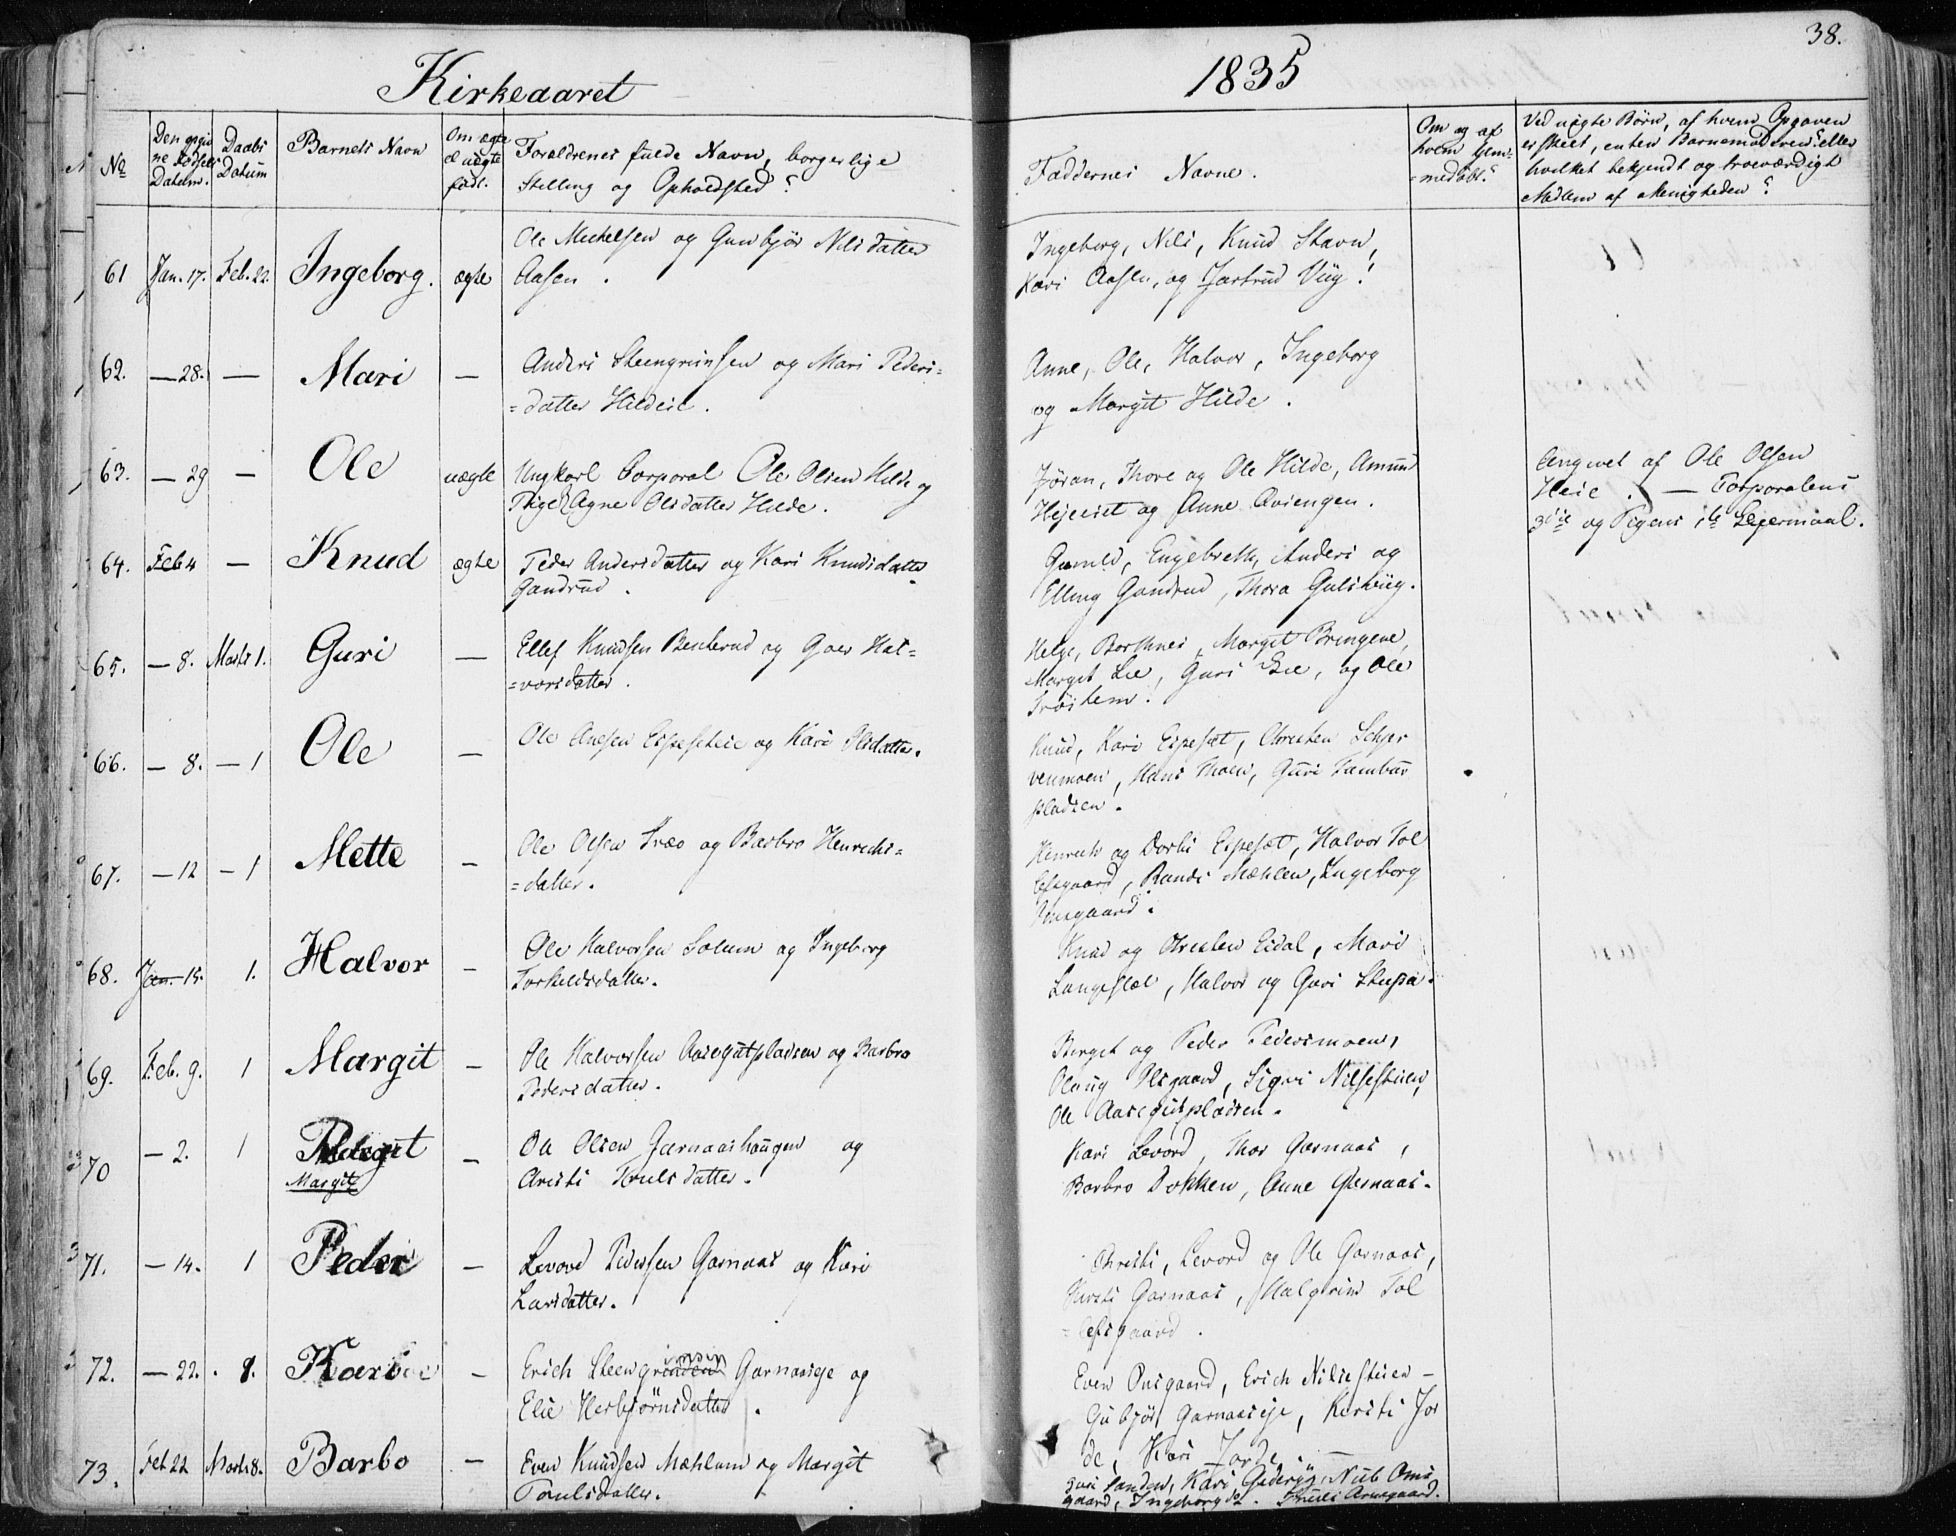 38.
Kirkeaaret
1835
No
Den opgiv
ne Fødsels
Datum.
Daabs
Datum
Barnets Navn
Om ægte
el uægte
født.
Forældrenes fulde Navn, borgerlige
Stilling og Opholdsted?
Faddernes Navne.
Om og af
hvem hjem-
Ved uægte Børn, af hvem Opgaven
er skeet, enten Barnemoderen eller
hvilket bekjendt og troeværdigt
Medlem af Menigheden?
61 Jan. 17. Feb. 22. Ingeborg. ægte
Ole Michelsen og Gunbjør Nilsdatter
Aasen.
Ingeborg, Nils, Knud Stavn,
Kari Aasen, og Jartrud Viig.
62. — 28. — Mari —
Anders Steengrimsen og Mari Peders=
=datter Hildeie.
Anne, Ole, Halvor, Ingeborg
og Margit Hilde.
63. — 29 — Ole uægte
Ungkarl Corporal Ole Olsen Hilde og
Pige Agne Olsdatter Hilde.
Jøran, Thore og Ole Hilde, Amund
og Anne Qviengen.
Angivet af Ole Olsen
Heie. — Corporalens
3die og Pigens 1te Lejermaal.
64. Feb 4 — Knud ægte
Peder Andersdatter og Kari Knudsdatter
Gandrud.
Gunild, Engebreth, Anders og
Elling Gandrud, Thora Gulsviig.
65. — 8. Marts 1. Guri —
Ellef Knudsen og Goer Hal=
=vorsdatter.
Helge, Barthnes, Margit Bringene,
Margit Lie, Guri Lie, og Ole
Trøstem.
66. — 8. — 1 Ole —
Ole Espeseteie og Kari Olsdatter.
Knud, Kari Espeset, Christen Schjer
venmoen, Hans Thoen, Guri Tambur
pladsen.
67. — 12 — 1 Mette —
Ole Olsen Træo og Barbro Henrichs=
=datter.
Henrich og Dorthi Espeset, Halvor Tol
lefsgaard, Randi Mæhlen, Ingeborg
68. Jan. 15. 1. Halvor —
Ole Halvorsen Solem og Ingeborg
Torkeldsdatter.
Knud og Christen Eidal, Mari
Langeslet, Halvor og Guri
69. Feb. 9. 1 Margit —
Ole Halvorsen Aasegutpladsen og Barbro
Pedersdatter.
Birget og Peder Pedersmoen,
Olaug Olsgaard, Sigri Nilsestuen,
Ole Aasegutpladsen.
70 — 2. 1
Margit
—
Ole Olsen Garnaashaugen og
Christi Trulsdatter.
Kari Levord, Thor Garnaas,
Barbro Dokken, Anne Garnaas.
71. — 14. 1 Peder —
Levord Pedersen Garnaas og Kari
Larsdatter.
Christi, Levord og Ole Garnaas,
Kirsti Garnaas, Halgrim Tol
=lefsgaard.
72. — 22. 8. —
Erich Steengrimsen Garnaseje og
Elie Herbjørnsdatter.
Even Onsgaard, Erich Nilsestuen —
Gubjør Garnaaseje, Kersti Jor
de, Kari Jorde.
73. Feb 22 Marts 8. Barbo —
Even Knudsen Mæhlum og Margit
Truulsdatter.
Guri Sanden, Kari Nub Ons
gaard, Ingeborg do. Truls Arnegaard.